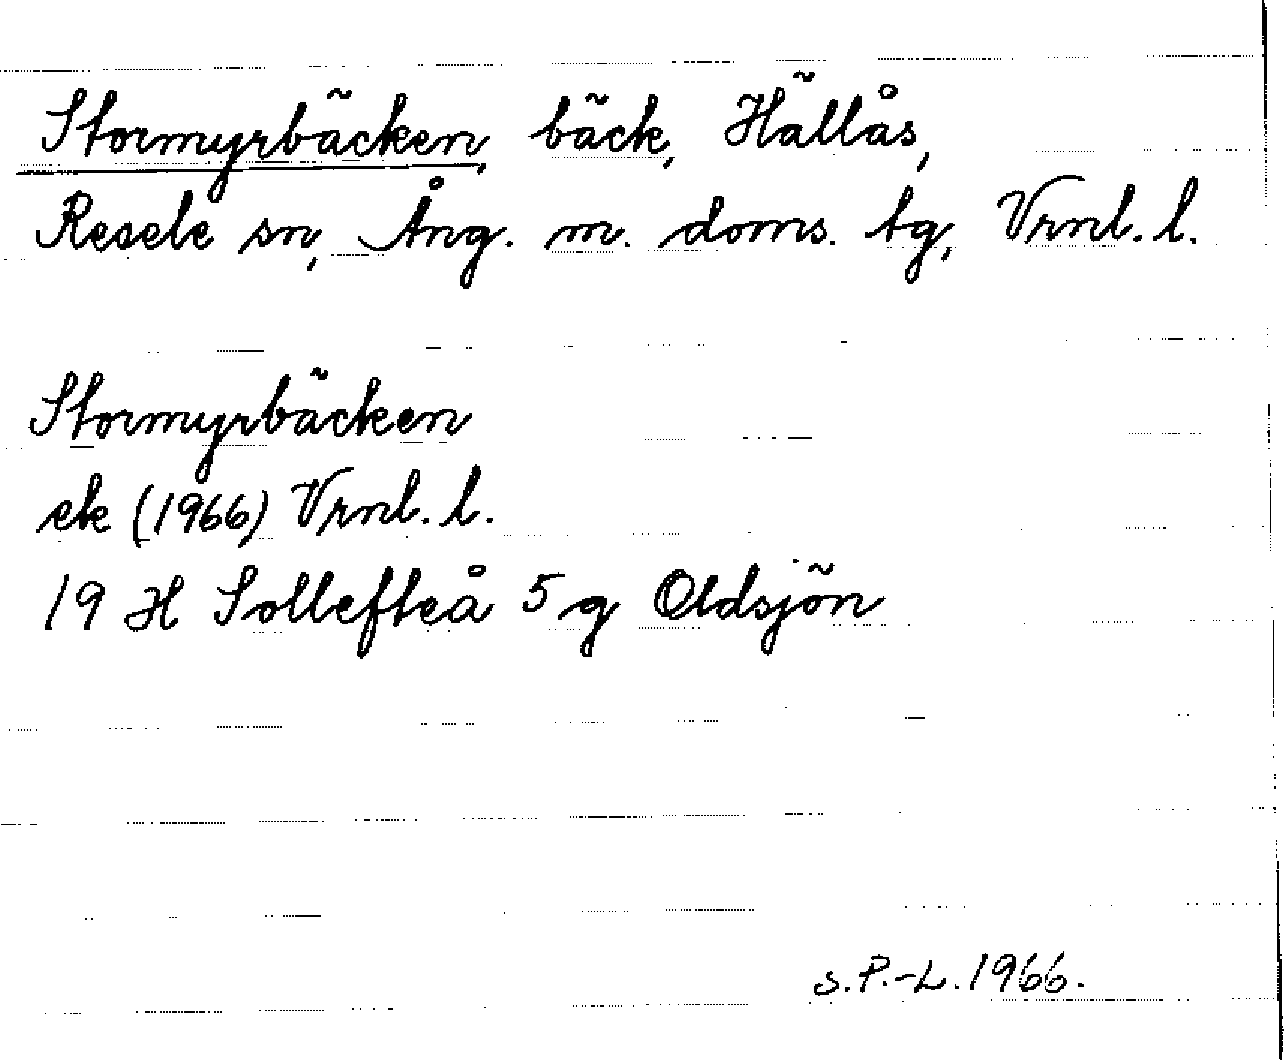 Stormyrbäcken, bäck, Hällås,
Resele sn, Ång. m. doms. tg, Vrnl. l.
Stormyrbäcken
ek (1966) Vrnl. l.
19 H Sollefteå 5 g Oldsjön
S.P.-L. 1966.